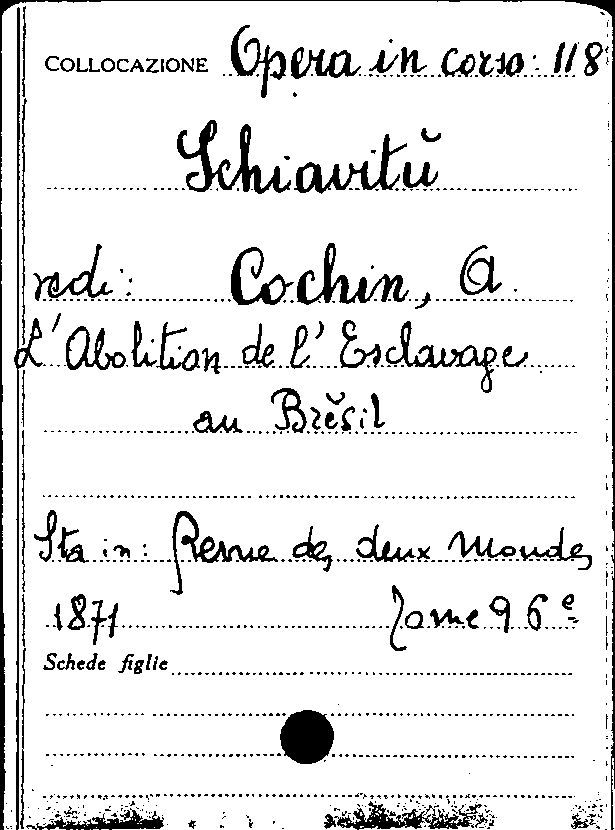 COLLOCAZIONE Opera in corso: 118
Schiavitù
vedi: Cochin, A.
L'Abolition de l'Esclavage
au Brésil
Sta in: Revue des deux Mondes
1871 Tome 96e
Schede figlie